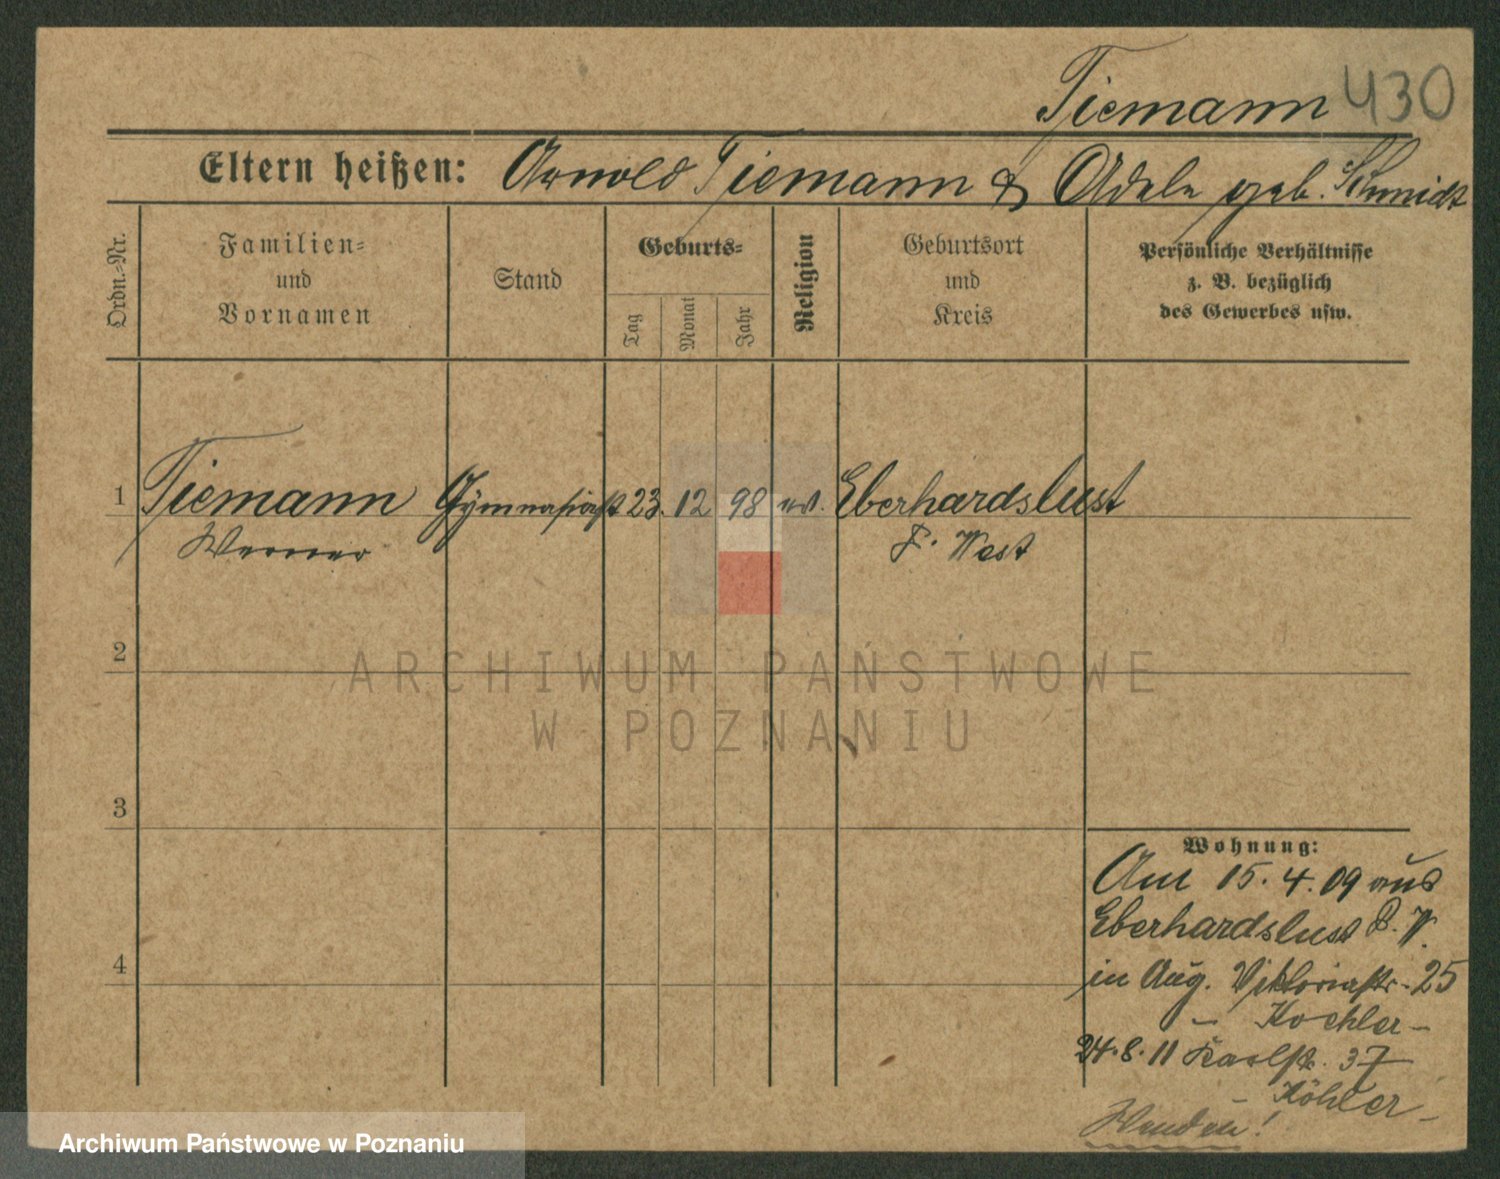 Tiemann 430
Eltern heißen: Arnold Tiemann & Adele geb. Schmidt
Ordn.-Nr.
Familien-
und
Vornamen
Stand
Geburts-
Tag
Monat
Jahr
Religion
Geburtsort
und
Kreis
Persönliche Verhältnisse
z. B. bezüglich
des Gewerbes usw.
1 Tiemann Gymnasiast 23. 12 98 ev. Eberhardslust
Werner West
2
ARCHIWUM PAŃSTWOWE
W POZNANIU
3
4
Wohnung:
Am 15.4.09 aus
Eberhardslust P. W.
in Aug. Viktoriastr. 25
- Koehler -
24.8.11 Karlstr. 37
- Köhler -
Wenden!
Archiwum Państwowe w Poznaniu